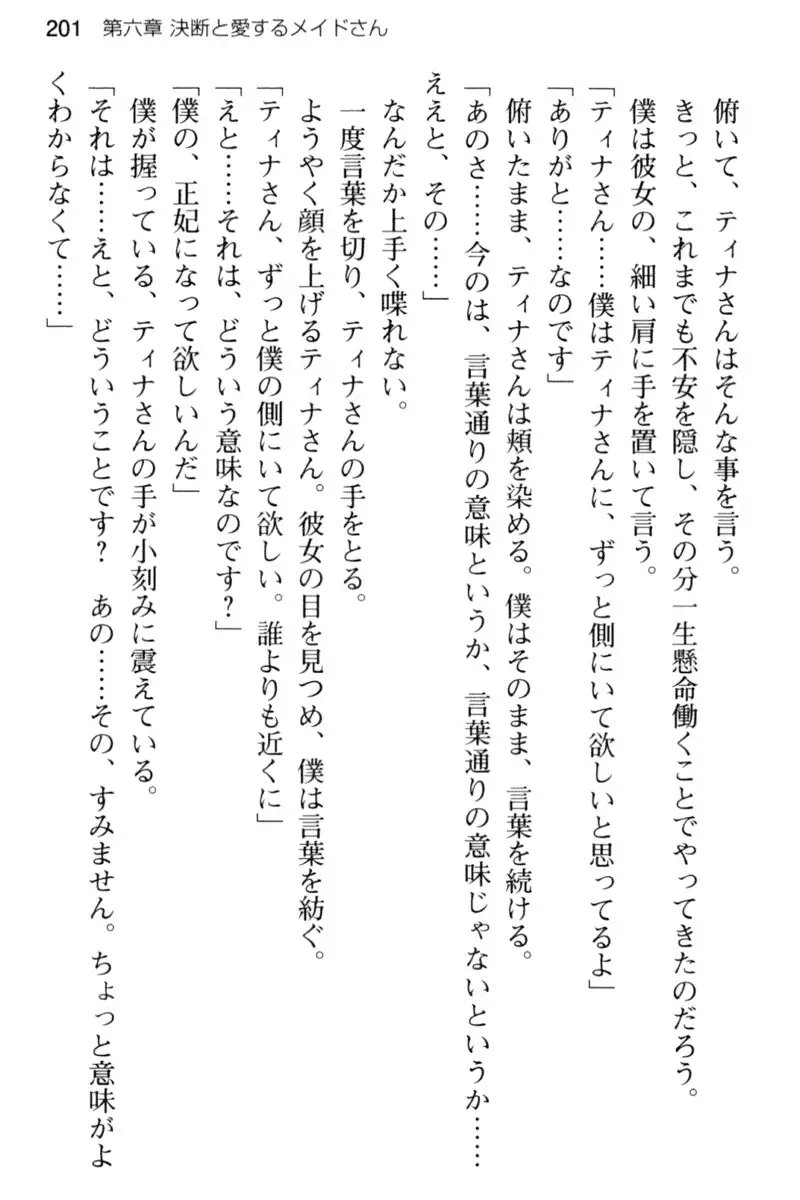 201 第六章 決断と愛するメイドさん
俯いて、ティナさんはそんな事を言う。
きっと、これまでも不安を隠し、その分一生懸命働くことでやってきたのだろう。
僕は彼女の、細い肩に手を置いて言う。
「ティナさん……僕はティナさんに、ずっと側にいて欲しいと思ってるよ」
「ありがと……なのです」
俯いたまま、ティナさんは頬を染める。僕はそのまま、言葉を続ける。
「あのさ……今のは、言葉通りの意味というか、言葉通りの意味じゃないというか……
ええと、その……」
なんだか上手く喋れない。
一度言葉を切り、ティナさんの手をとる。
ようやく顔を上げるティナさん。彼女の目を見つめ、僕は言葉を紡ぐ。
「ティナさん、ずっと僕の側にいて欲しい。誰よりも近くに」
「えと……それは、どういう意味なのです?」
「僕の、正妃になって欲しいんだ」
僕が握っている、ティナさんの手が小刻みに震えている。
「それは……えと、どういうことです? あの……その、すみません。ちょっと意味がよ
くわからなくて……」